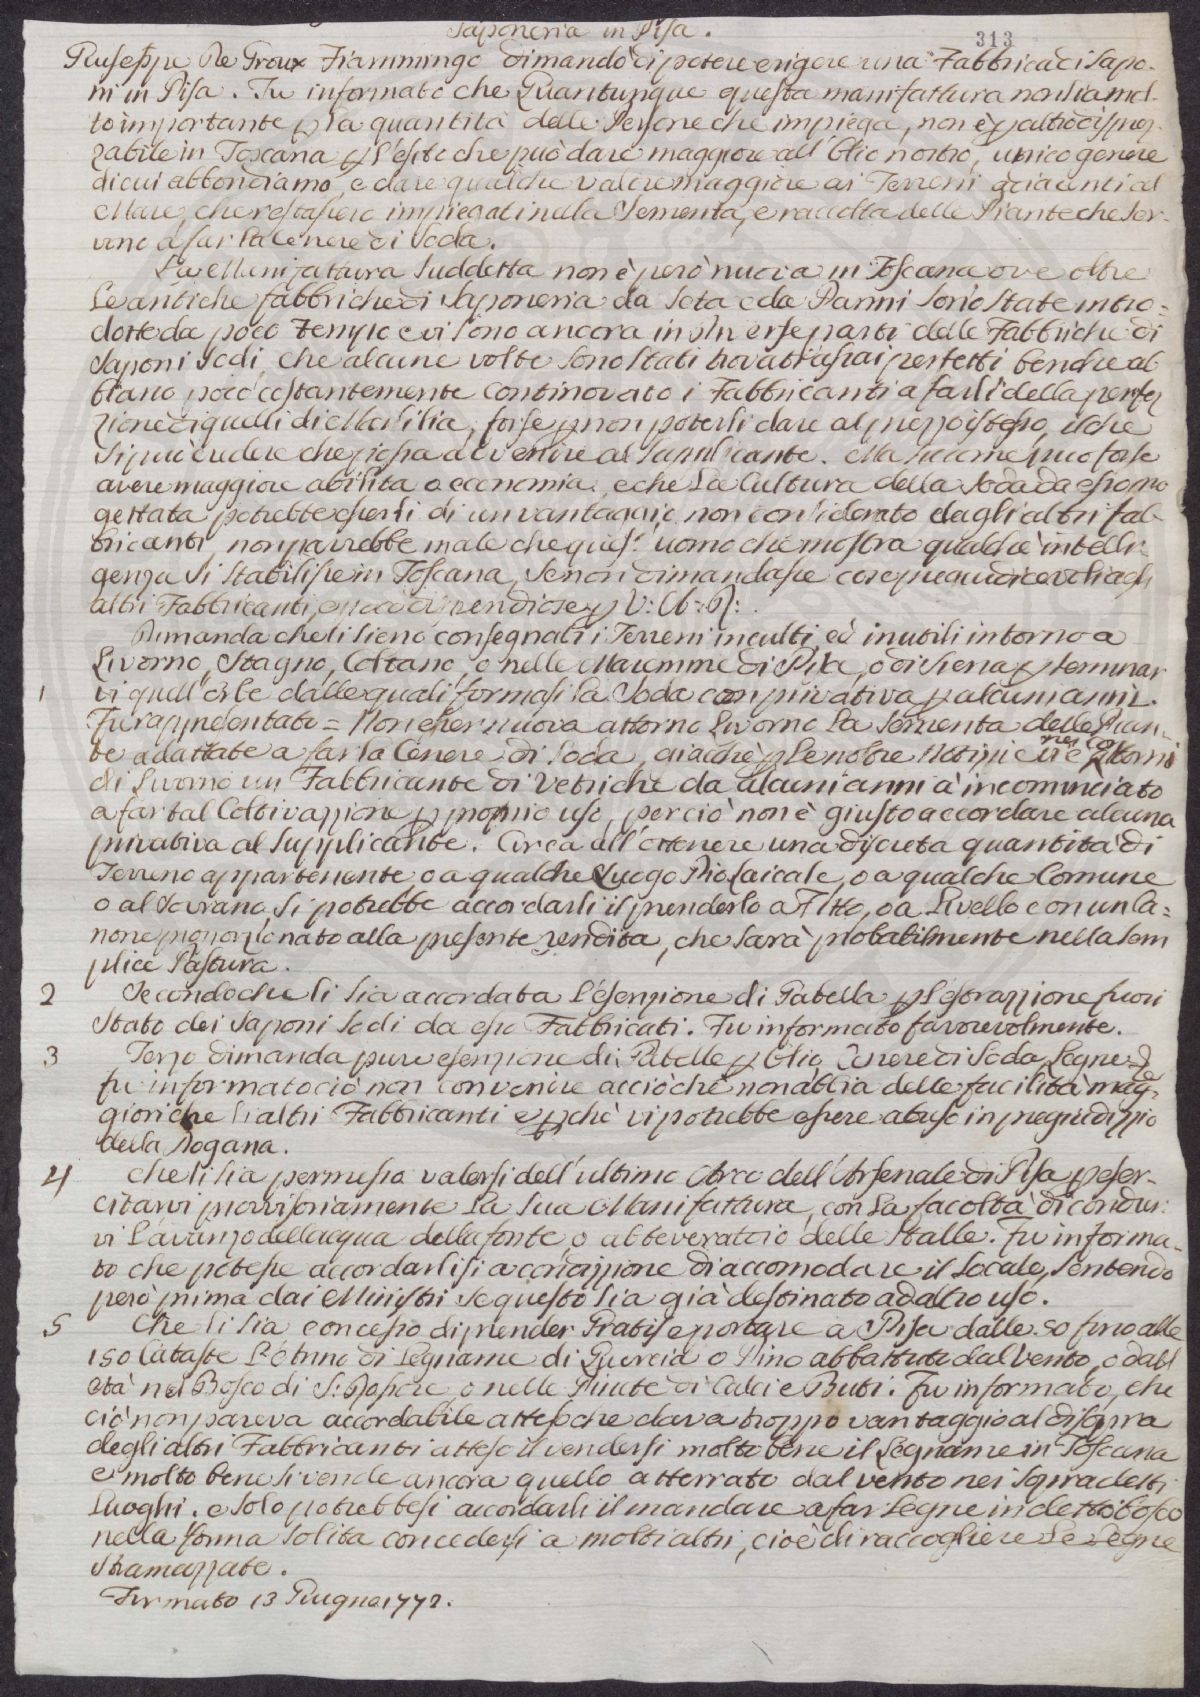 Saponeria in Pisa.
313
Giuseppe De Groux Fiammingo dimandò di potere erigere una Fabbrica di Sapo-
ni in Pisa. Fu informato che Quantunque questa manifattura non sia mol-
to importante p la quantità delle Persone che impiega, non è p altro disprez-
zabile in Toscana p l'esito che può dare maggiore all'Olio nostro, unico genere
di cui abbondiamo, e dare qualche valore maggiore ai Terreni adiacenti al
Mare, che restassero impiegati nella Sementa, e raccolta delle Piante che ser-
vono a far la Cenere di Soda.
La Manifattura Suddetta non è però nuova in Toscana ove oltre
Le antiche fabbriche di Saponeria da Seta e da Panni sono state intro=
dotte da poco tempo e vi sono ancora in diverse parti delle Fabbriche di
Saponi Sodi, che alcune volte sono stati trovati assai perfetti benche ab
biano poco costantemente continovato i Fabbricanti a farli della perfe-
zione di quelli di Marsilia, forse p non poterli dare al prezzo istesso, il che
si può credere che possa avvenire al Supplicante. Ma siccome può forse
avere maggiore abilità o economia, e che La Cultura della Soda da esso pro
gettata potrebbe esserli di un vantaggio non considerato dagli altri fab-
bricanti, non parrebbe male che quest' uomo che mostra qualche intelli-
genza si stabilisse in Toscana, se non dimandasse cose pregiudicevoli agli
altri Fabbricanti, o troppo dispendiose p V: A: R:.
Dimanda che li sieno consegnati i Terreni inculti, ed inutili intorno a
Livorno, Stagno, Coltano, o nelle Maremme di Pisa, o di Siena p seminar
1 vi quell'erbe dalle quali formasi la Soda con privativa p alcuni anni.
Fu rappresentato = Non esser nuova attorno Livorno La Sementa delle Pian-
te adattate a far la Cenere di Soda, giacchè p le nostre notizie vi è ne contorni
di Livorno un Fabbricante di Vetri che da alcuni anni à incominciato
a far tal Coltivazione p proprio uso, perciò non è giusto accordare alcuna
privativa al Supplicante. Circa all'ottenere una discreta quantità di
Terreno appartenente o a qualche Luogo Pio Laicale, o a qualche Comune
o al Sovrano, si potrebbe accordarli il prenderlo a Fitto, o a Livello con un Ca=
none proporzionato alla presente rendita, che sarà probabilmente nella sem
plice Pastura.
2 Secondo che li sia accordata l'esenzione di Gabella p l'estrazzione fuori
Stato dei Saponi Sodi da esso Fabbricati. Fu informato favorevolmente.
3 Terzo dimanda pure esenzione di Gabelle p Olio, Cenere di Soda, Legne &
fu informato ciò non convenire acciò che non abbia delle facilità mag-
giori che li altri Fabbricanti e pchè vi potrebbe essere abuso in pregiudizzio
della Dogana.
4 Che li sia permesso valersi dell'ultimo Arco dell'Arsenale di Pisa p eser-
citarvi provvisoriamente La Sua Manifattura, con La facoltà di condur-
vi L'avanzo dell'acqua della fonte, o abbeveratoio delle Stalle. Fu informa-
to che potesse accordarlisi a condizzione di accomodare il Locale, sentendo
però prima dai Ministri se questo sia già destinato ad altro uso.
5 Che li sia concesso di prender Gratis e portare a Pisa dalle 50 fino alle
150 Cataste l'anno di Legname di Quercia o Pino abbattuti dal vento, o dall
età nel Bosco di S: Rossore, o nelle Pinete di Calci e Buti. Fu informato, che
ciò non pareva accordabile attesoche dava troppo vantaggio al disopra
degli altri Fabbricanti atteso il vendersi molto bene il Legname in Toscana
e molto bene si vende ancora quello atterrato dal vento nei sopradetti
Luoghi. e solo potrebbesi accordarli il mandare a far Legne in detto bosco
nella forma solita concedersi a molti altri, cioè di raccogliere Le Legne
Stramazzate.
Firmato 13 Giugno 1772.